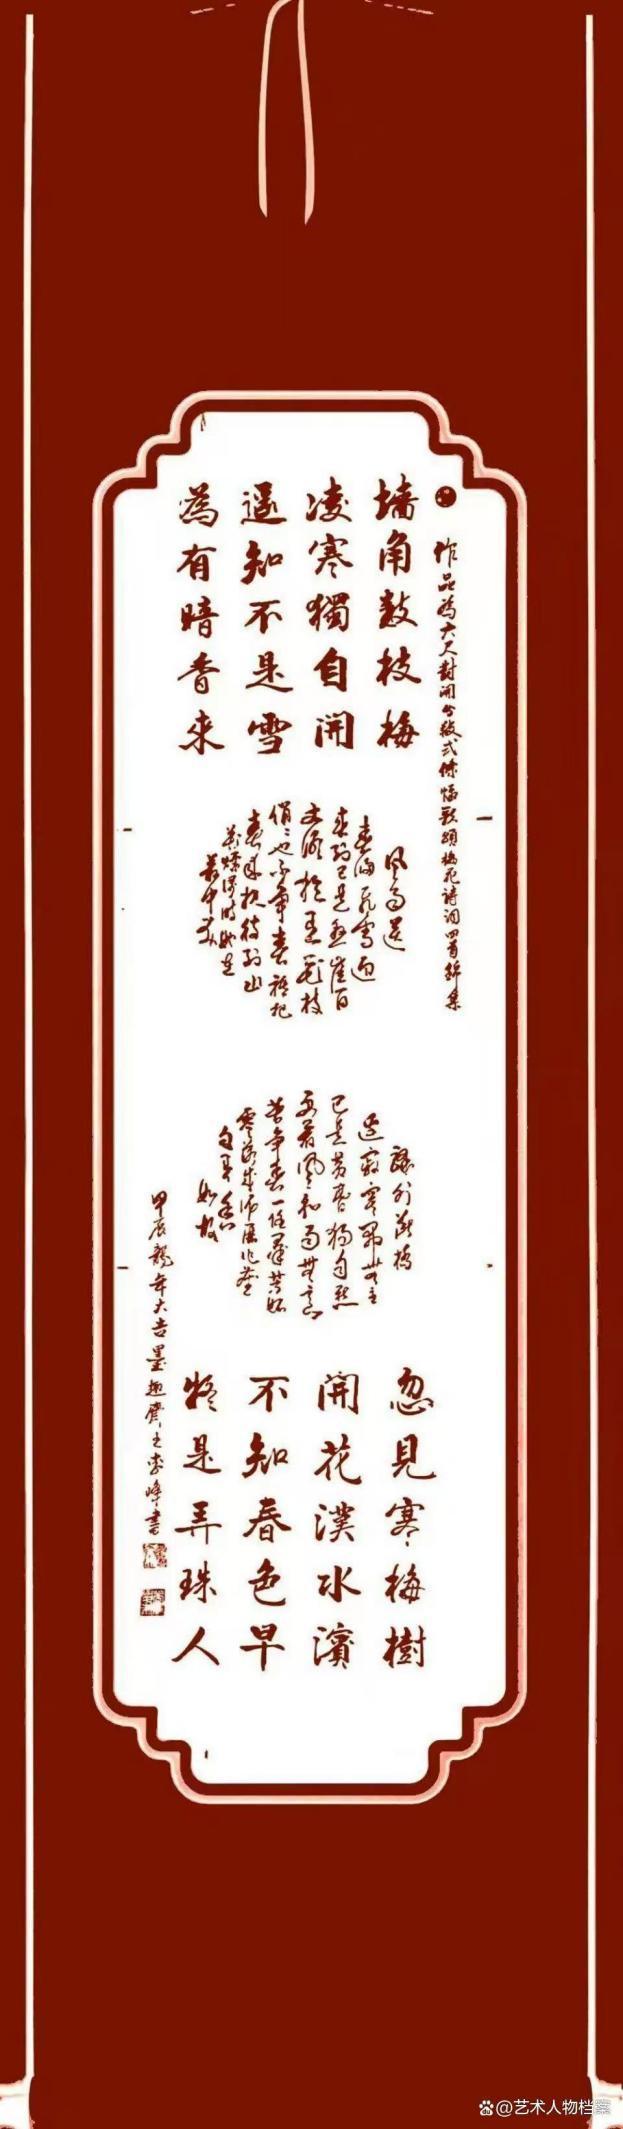 作品為六尺對開分段式條幅歌頌梅花詩詞四首錦集
墙角數枝梅
凌寒獨自開
遥知不是雪
為有暗香來
風雨送
春歸飛雪迎
春到已是懸崖百
丈冰猶有花枝
俏俏也不争春祇把
春來报待到山
花爛漫時她在
叢中笑
驛外断橋
邊寂寞開無主
已是黄昏獨自愁
更著風和雨無意
苦争春一任羣芳妒
零落成泥碾作塵
只有香
如故
忽見寒梅樹
開花漢水濱
不知春色早
疑是弄珠人
甲辰龍年大吉墨趣齋主李峰書
@艺术人物档案